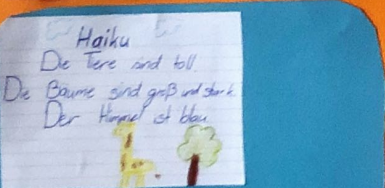 Haiku
Die Tere sind toll
Die Bäume sind groß und stark
Der Himmel ist blau